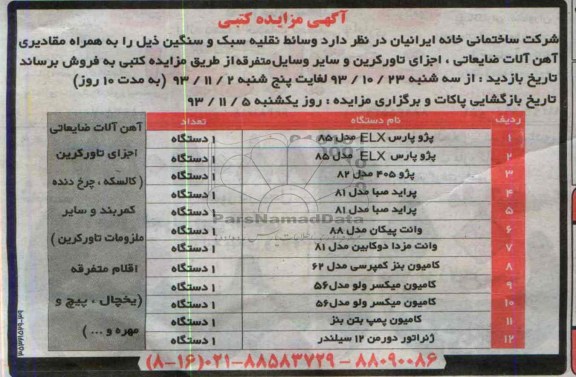 آگهی مزایده کتبی
شرکت ساختمانی خانه ایرانیان در نظر دارد وسائط نقلیه سبک و سنگین ذیل را به همراه مقادیری
آهن آلات ضایعاتی ، اجزای تاورکرین و سایر وسایل متفرقه از طریق مزایده کتبی به فروش برساند
تاریخ بازدید : از سه شنبه ۲۳ / ۱۰ / ۹۳ لغایت پنج شنبه ۲ / ۱۱ / ۹۳ (به مدت ۱۰ روز)
تاریخ بازگشایی پاکات و برگزاری مزایده : روز یکشنبه ۵ / ۱۱ / ۹۳
ردیف نام دستگاه تعداد
۱ پژو پارس ELX مدل ۸۵ ۱ دستگاه
۲ پژو پارس ELX مدل ۸۵ ۱ دستگاه
۳ پژو ۴۰۵ مدل ۸۲ ۱ دستگاه
۴ پراید صبا مدل ۸۱ ۱ دستگاه
۵ پراید صبا مدل ۸۱ ۱ دستگاه
۶ وانت پیکان مدل ۸۸ ۱ دستگاه
۷ وانت مزدا دوکابین مدل ۸۱ ۱ دستگاه
۸ کامیون بنز کمپرسی مدل ۶۲ ۱ دستگاه
۹ کامیون میکسر ولو مدل ۵۶ ۱ دستگاه
۱۰ کامیون میکسر ولو مدل ۵۶ ۱ دستگاه
۱۱ کامیون پمپ بتن بنز ۱ دستگاه
۱۲ ژنراتور دورمن ۱۲ سیلندر ۱ دستگاه
آهن آلات ضایعاتی
اجزای تاورکرین
( کالسکه ، چرخ دنده
کمربند و سایر
ملزومات تاورکرین )
اقلام متفرقه
(یخچال ، پیچ و
مهره و ... )
ParsNamadData
۸۸۰۹۰۰۸۶ – ۰۲۱-۸۸۵۸۳۷۲۹ (۸-۱۶)